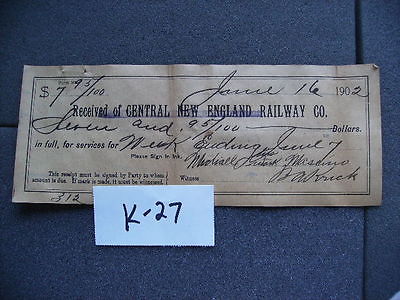 $ 7 95/100 June 16 1902
Received of CENTRAL NEW ENGLAND RAILWAY CO.
Seven and 95/100 Dollars.
in full, for services for Week Ending June 7
Please Sign in Ink.
This receipt must be signed by Party to whom
amount is due. If mark is made, it must be witnessed. Witness
312
K-27